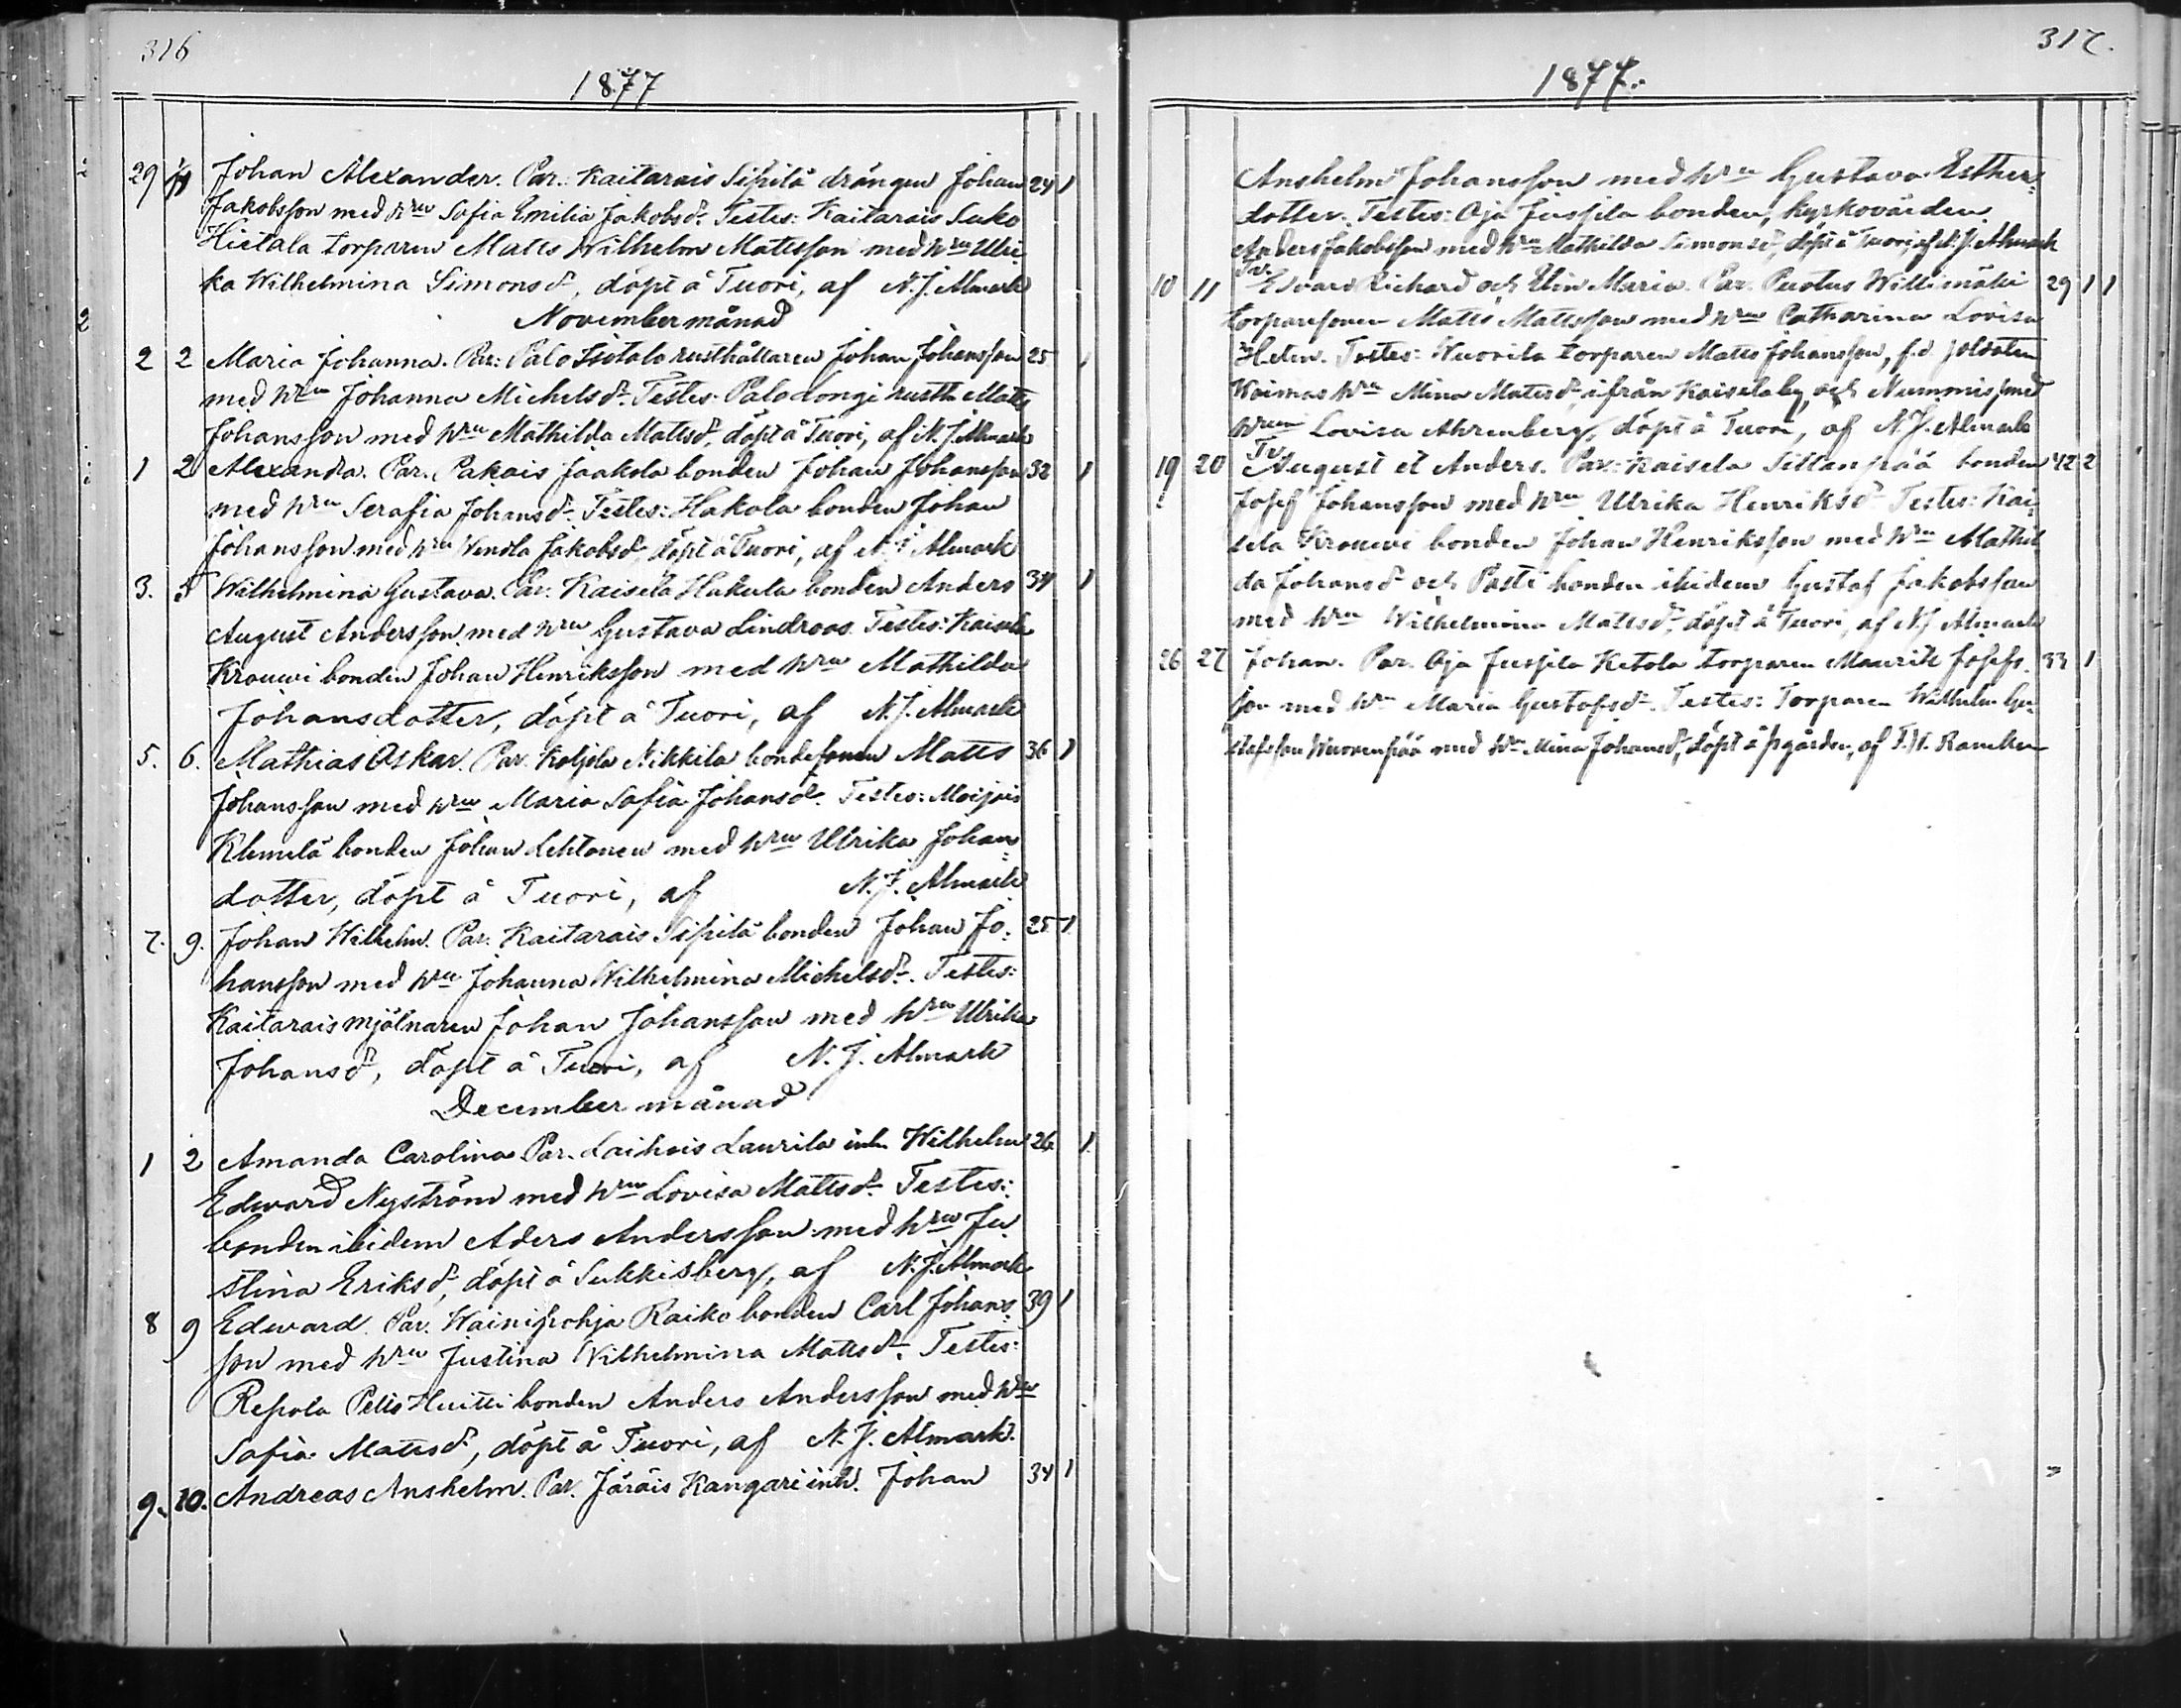 316
1877
29 Johan Alexander. Par.: Kaitarais Sipilä drängen Johan 24 1
Jakobsson med hru Sofia Emilia Jakobsd. Testes: Kaitarais Suko
Hietala torparen Matts Wilhelm Mattsson med hru Ulri
ka Wilhelmina Simonsd, döpt å Tuori, af N. J. Almark
November månad
2 2 Maria Johanna. Par: Palo Isotalo rusthållaren Johan Johansson 25 1
med hru Johanna Michelsd. Testes: Palo Longi rusth. Matts
Johansson med hru Mathilda Mattsd, döpt å Tuori, af N. J. Almark
1 2 Alexandra. Par. Pakais Jaakola bonden Johan Johansson 32 1
med hru Serafia Johansd. Testes: Hakola bonden Johan
Johansson med hru Wendla Jakobsd döpt å Tuori, af N. J. Almark
3. 5 Wilhelmina Gustava. Par. Kaisela Hakula bonden Anders 34 1
August Andersson med hru Gustava Lindroos. Testes: Kaisela
Krouwi bonden Johan Henriksson med hru Mathilda
Johansdotter, döpt å Tuori, af N. J. Almark
5. 6. Mathias Oskar. Par. Koljola Nikkila bondesonen Matts 36 1
Johansson med hru Maria Sofia Johansd. Testes: Moijois
Klemelä bonden Johan Lehtonen med hru Ulrika Johans=
dotter, döpt å Tuori, af N. J. Almark
7. 9. Johan Wilhelm. Par. Kaitarais Sipilä bonden Johan Jo= 25 1.
hansson med hru Johanna Wilhelmina Michelsd. Testes:
Kaitarais mjölnaren Johan Johansson med hru Ulrika
Johansd, döpt å Tuori, af N. J. Almark
December månad
1 2 Amanda Carolina Par. Laihois Laurila inh. Wilhelm 26 1.
Edward Nyström med hru Lovisa Mattsd. Testes:
bonden ibidem Aders Andersson med hru Ju
stina Eriksd, döpt å Sukkisberg, af N. J. Almark
8 9 Edward. Par. Wainisrohja Raiko bonden Carl Johans= 39 1
son med hru Justina Wilhelmina Mattsd. Testes:
Repola Pelto Huitti bonden Anders Andersson med hru
Safia Mattsd, döpt å Tuori, af N. J. Almark.
9. 10. Andreas Anshelm. Par. Järäis Kangari inh. Johan 34 1
317.
1877.
Anshelm Johansson med hru Gustava Esther=
dotter. Testes: Oja Juspila bonden, kyrkovärden
Anders Jakobsson med hru Mathilda Simonsd, döpt å Tuori, af N. J. Almark
10 11 Tv. Edvard Richard och Elin Maria. Par. Puotus Willimäki 29 1 1
torparesonen Matts Mattsson med hru Catharina Lovisa
Helin. Testes: Wuorila torparen Matts Johansson, f.d. soldaten
Koimas hru Mina Mattsd, ifrån Kaisela by, och Nummis, med
hrun Lovisa Ahrenberg, döpt å Tuori, af N. J. Almark
19 20 Tv. August et Anders. Par.: Kaisela Sillanpää bonden 42 2
Josef Johansson med hru Ulrika Henriksd Testes: Kai=
sela Krouwi bonden Johan Henriksson med hru Mathil
da Johansd och Pasti bonden ibidem Gustaf Jakobsson
med hru Wilhelmina Mattsd, döpt å Tuori, af N. J. Almark
26 27 Johan. Par. Oja Juspila Ketola torparen Maurits Josefs= 33 1
son med hru Maria Gustafsd. Testes: Torparen Wilhelm Gu=
stafsson Wuorenpää med hru Mina Johansd, döpt å pgården, af